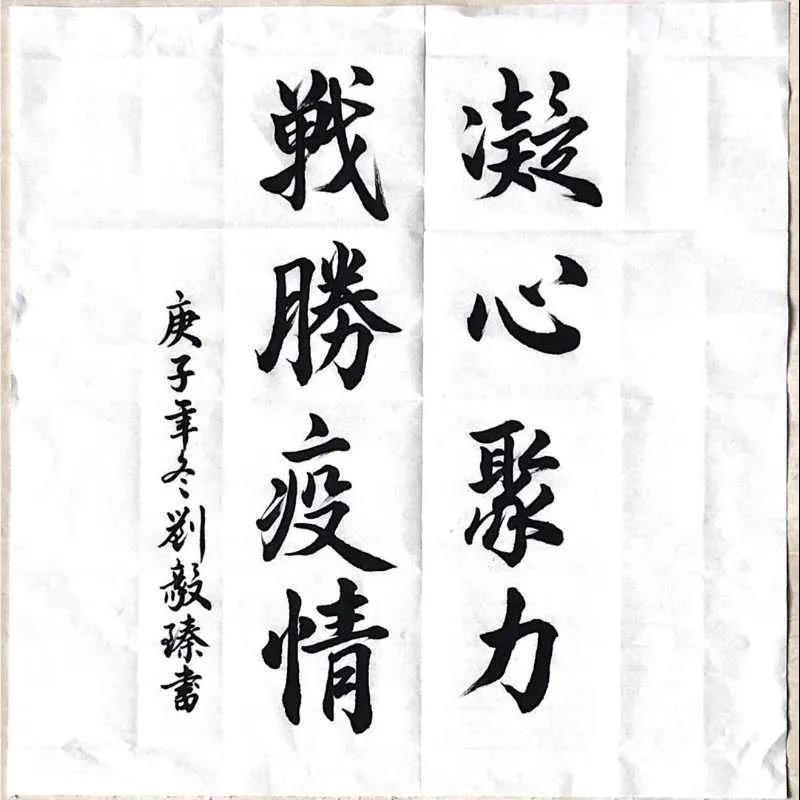 凝心聚力
戰勝疫情
庚子年冬劉毅臻書